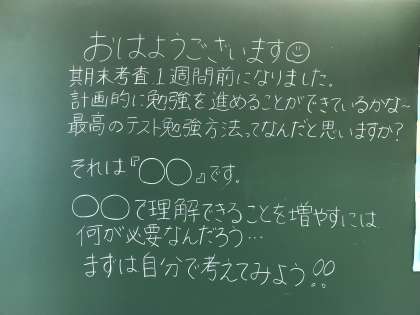 おはようございます☺
期末考査1週間前になりました。
計画的に勉強を進めることができているかな~
最高のテスト勉強方法ってなんだと思いますか?
それは『○○』です。
○○で理解できることを増やすには
何が必要なんだろう…
まずは自分で考えてみよう!!